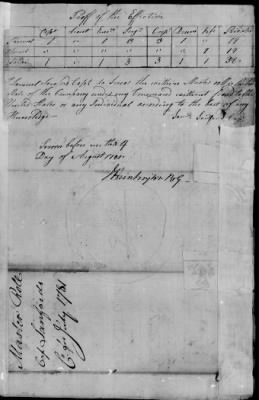 Proof of the Effective
Capt Lieut Ensn Serjt Corpl Drum Fife Privates
Present 1 " 1 3 3 1 " 18
Absent " " " " " " 1 18
Total 1 " 1 3 3 1 1 36
I Samuel Sanford Capt do Swear the within Muster roll is a true
State of the Company under my Command without fraud to the
United States or any Individual according to the best of my
Knowledge
Sworn before me this 4
Day of August 1781
J Huntington B G
Muster Role
Cap Sanfords
Co for July 1781